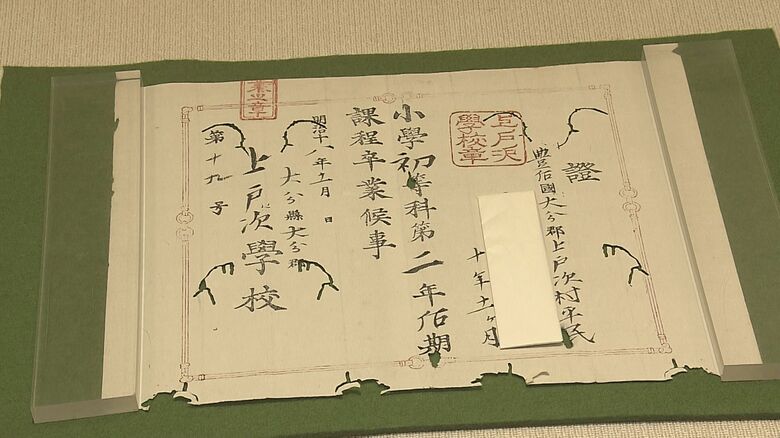 證
豊后國大分郡上戸次村平民
十年十一ヶ月
小學初等科第二年后期
課程卒業候事
明治十 年 月 日
大分縣大分郡
上戸次學校
第十九号
戸次
學校章
業之章